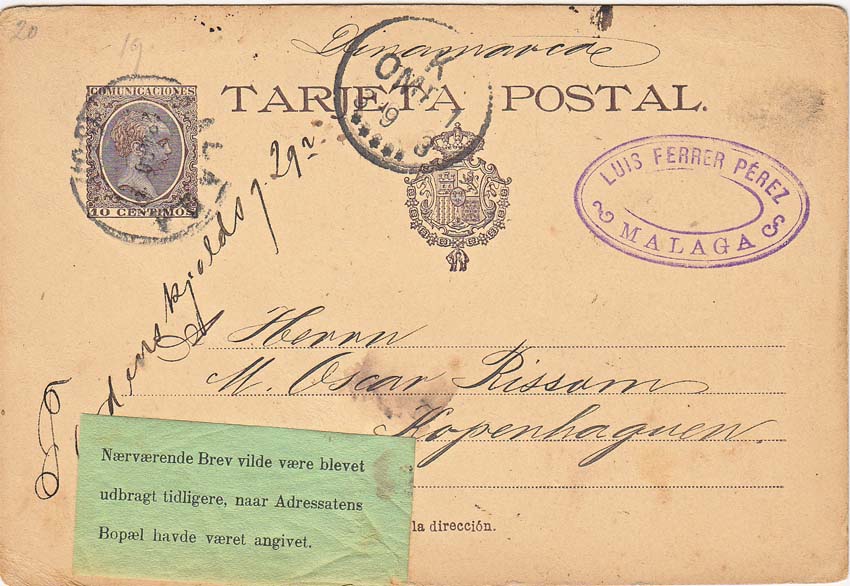 20
19
Dinamarca
COMUNICACIONES
TARJETA POSTAL.
10 CENTIMOS
K
OMB. 1
LUIS FERRER PÉREZ
MALAGA
29
Herrn
M. Oscar Rissom
Kopenhaguen.
Nærværende Brev vilde være blevet
udbragt tidligere, naar Adressatens
Bopæl havde været angivet.
la dirección.